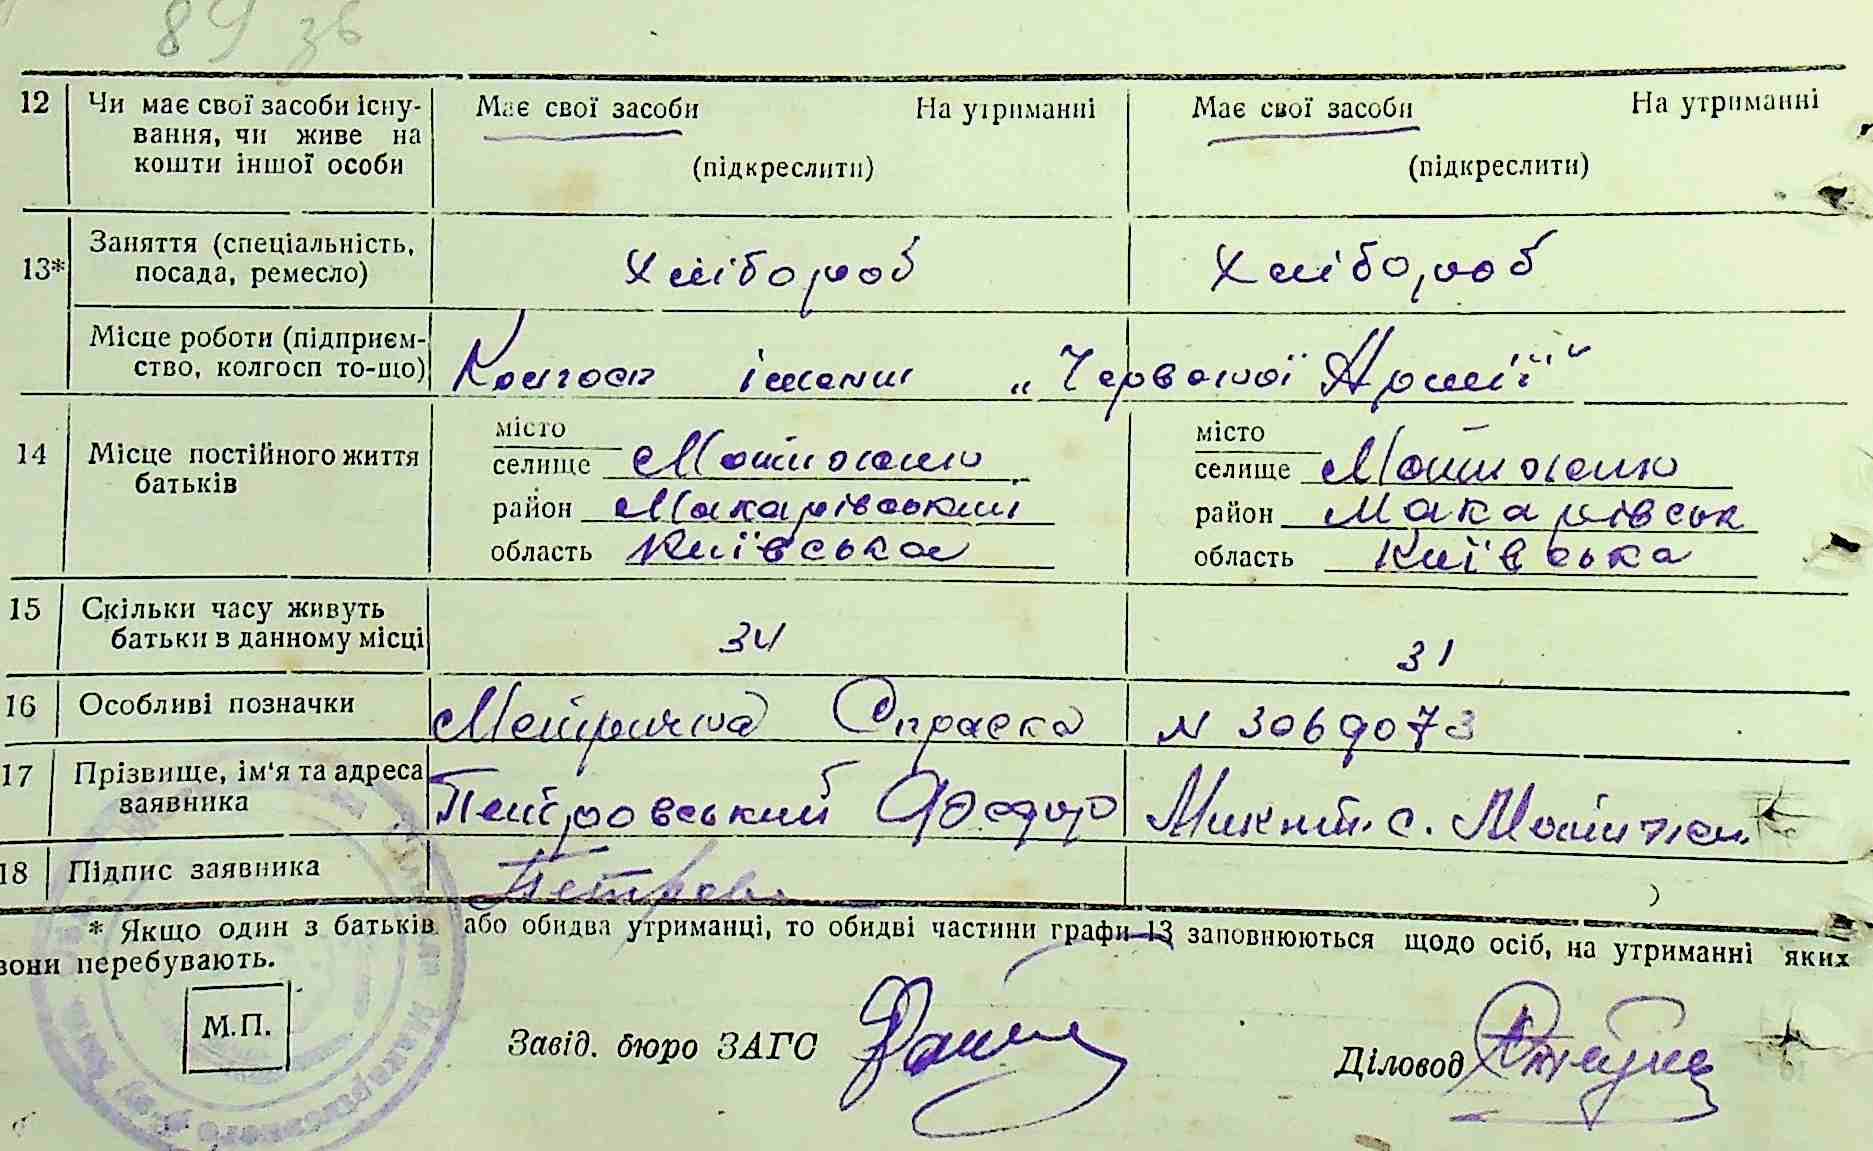 89 зв
12 Чи має свої засоби існу- Має свої засоби На утриманні Має свої засоби На утриманні
вання, чи живе на
кошти іншої особи (підкреслити) (підкреслити)
13* Заняття (спеціальність, Хлібороб Хлібороб
посада, ремесло)
Місце роботи (підприєм-
ство, колгосп то-що) Колгосп імени „Червоної Армії“
14 Місце постійного життя
батьків
місто місто
селище Мотижин селище Мотижин
район Макарівський район Макарівськ
область Київська область Київська
15 Скільки часу живуть
батьки в данному місці 34 31
16 Особливі позначки Метрична Справка N 3069073
17 Прізвище, ім'я та адреса
заявника Петровський Федор Микит. с. Мотижин.
18 Підпис заявника Петровс
* Якщо один з батьків або обидва утриманці, то обидві частини графи 13 заповнюються щодо осіб, на утриманні яких
вони перебувають.
М.П.
Завід. бюро ЗАГС
Діловод